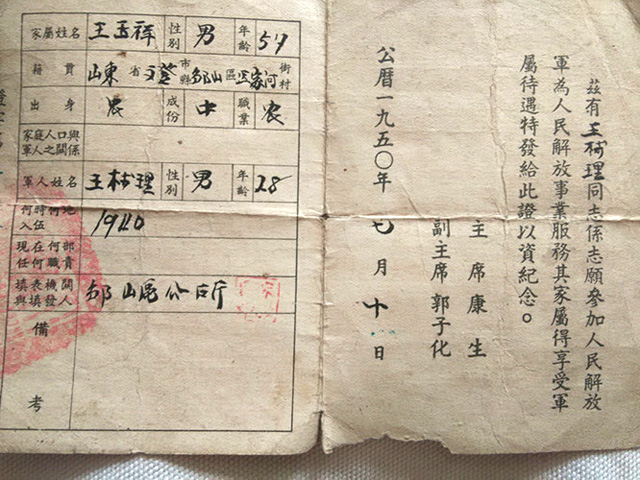 兹有王树理同志係志願參加人民解放
軍為人民解放事業服務其家屬得享受軍
屬待遇特發給此證以資紀念。
主席康生
副主席郭子化
公曆一九五〇年七月十日
家屬姓名 王玉祥 性別 男 年齡 57
籍貫 山東省文登市縣邹山區王家河街村
出身 农 成份 中 職業 农
家庭人口與軍人之關係
軍人姓名 王树理 性別 男 年齡 28
何時何地入伍 1940
現在何部任何職責
填表機關與填發人 邹山區公所
備考